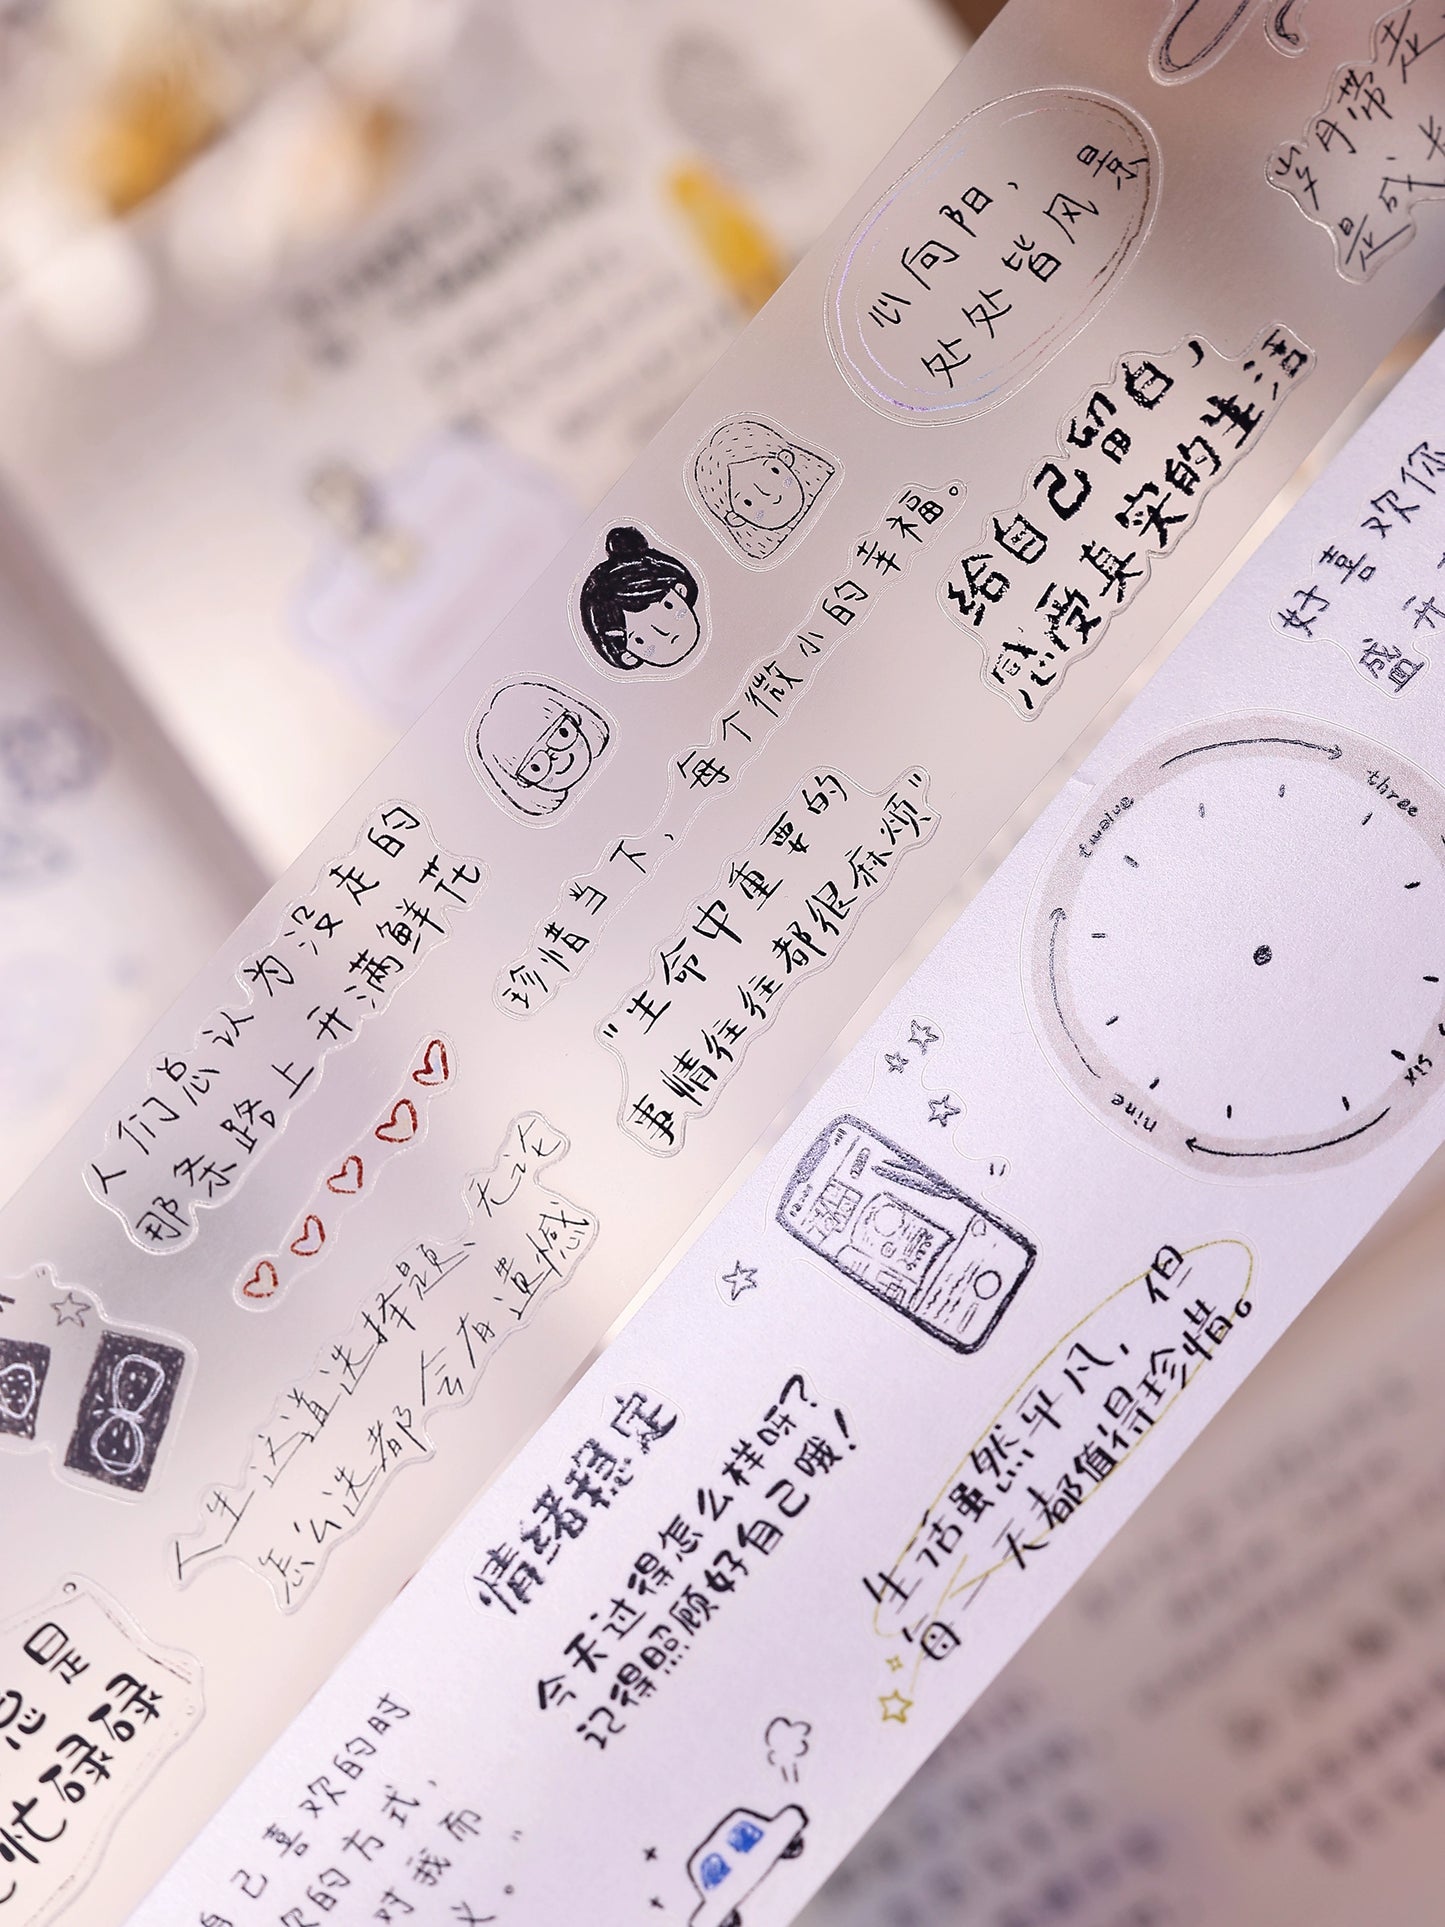 岁月带走
是成长
心向阳，
处处皆风景
给自己留白，
感受真实的生活
珍惜当下，每个微小的幸福。
"生命中重要的
事情往往都很麻烦"
人们总认为没走的
那条路上开满鲜花
人生这道选择题、无论
怎么选都会有遗憾
总是
忙碌碌
好喜欢你
盛开
twelve
three
six
nine
生活虽然平凡，但
每一天都值得珍惜。
情绪稳定
今天过得怎么样呀？
记得照顾好自己哦！
自己喜欢的时
欢的方式，
对我而
义。"